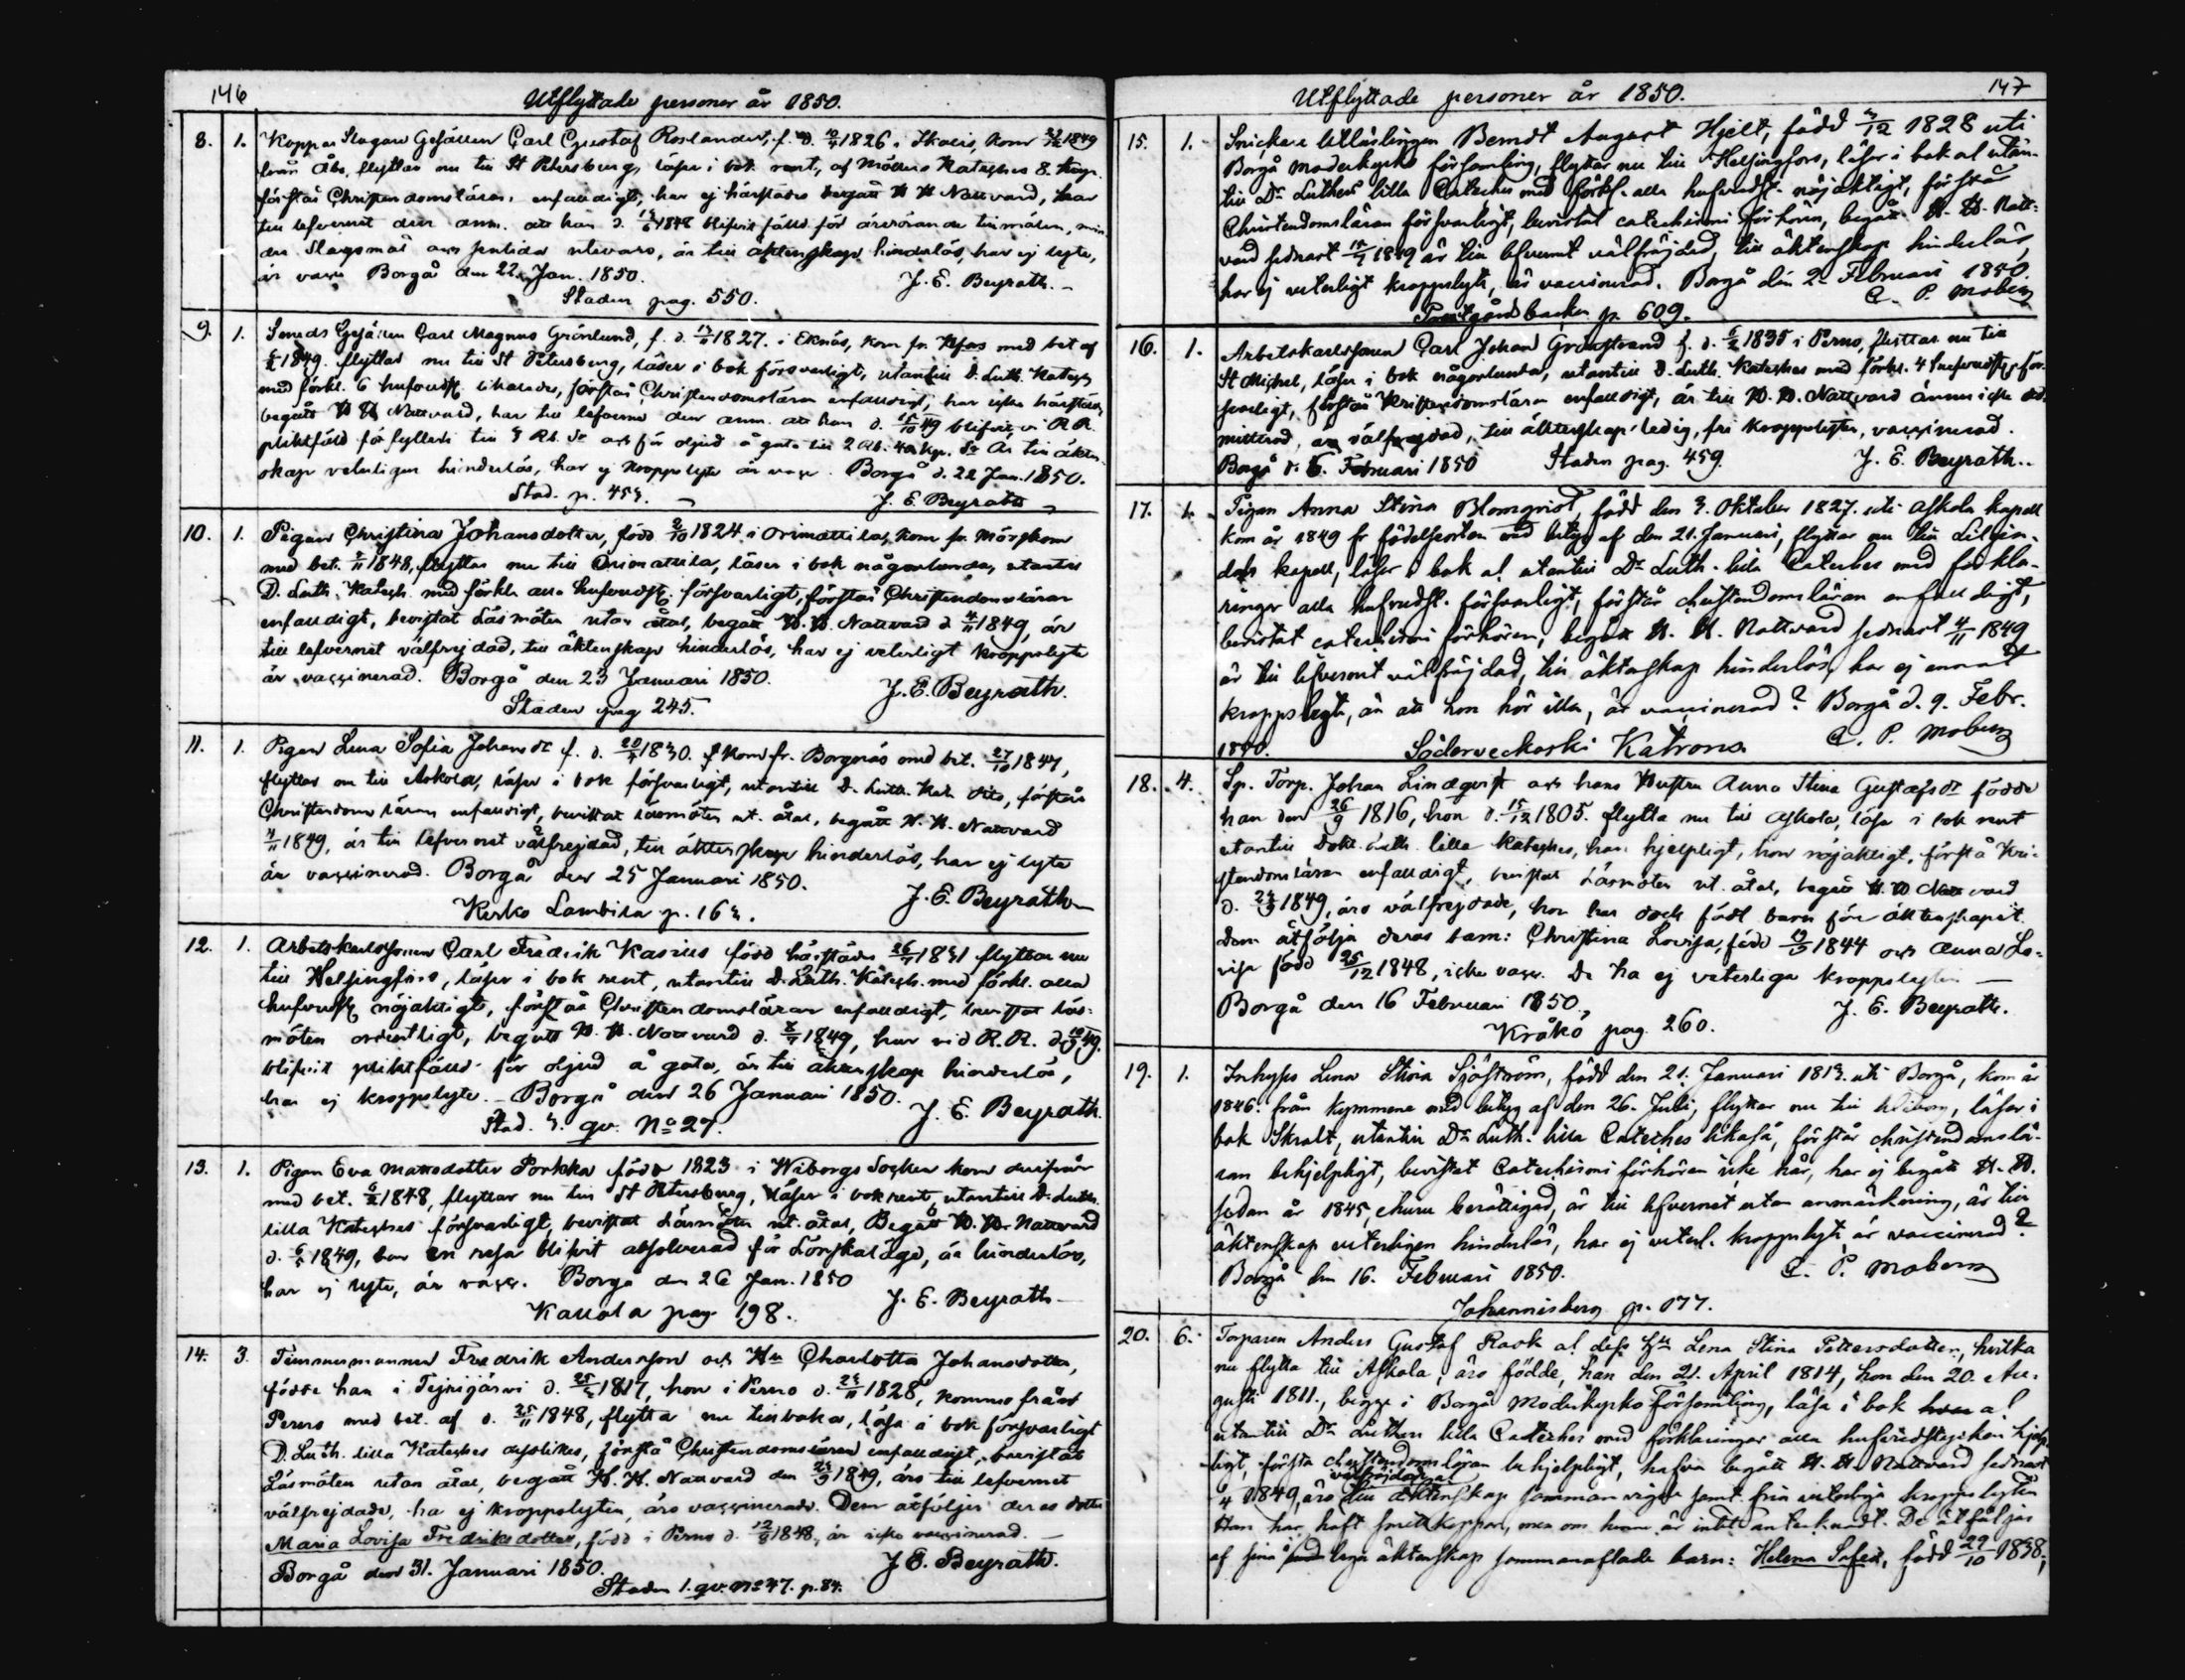 146
Utflyttade personer år 1850.
8. 1. Koppar Slagare Gesällen Carl Gustaf Roslander, f. d. 1826 i Itkalis, kom 1849
från Åbo, flyttar nu till St Petersburg, läser i bok rent, af Möllers Kateches 8.
förstår Christendomsläran enfaldigt, har ej härstädes begått H. H. Nattvard, har
till lefvernet den anm. att han d. 1848 blifvit fälld för ärerörande tillmälen,
Slagsmål och utevaro, är till äktenskap hinderlös, har ej lyte,
är vacc. Borgå den 22 Jan. 1850. J. E. Beyrath.
Staden pag. 550.
9. 1. Smeds Gesällen Carl Magnus Grönlund, f. d. 1827. i Eknäs, kom fr. Hfors med bet af
1849. flyttar nu till St Petersburg, läser i bok försvarligt, utantill D. Luth. Katech
med förkl. 6 hufvudst. likaledes, förstår Christendomsläran enfaldigt, har icke härstädes
begått H. H. Nattvard, har till lefverne den anm. att han d. 15/10 49 blifvit vi R.R.
pliktfälld för fylleri till 3 Rb. Sr och för oljud å gata till 2 Rb. 40 kp. Sr Är till äkten-
skap veterligen hinderlös, har ej kroppslyte är vacc. Borgå d. 22 Jan. 1850.
Stad. p. 453. J. E. Beyrath
10. 1. Pigan Christina Johansdotter, född 3/10 1824 i Orimattila, kom fr. Mörskom
med bet. 1848, flyttar nu till Orimattila, läser i bok någorlunda, utantill
D. Luth. Katech. med förkl. alla hufvudst. försvarligt, förstår Christendomsläran
enfaldigt, bevistat Läsmöten utan åtal, begått H. H. Nattvard d. 4/11 1849, är
till lefvernet välfrejdad, till äktenskap hinderlös, har ej veterligt kroppslyte
är vaccinerad. Borgå den 23 Januari 1850. J. E. Beyrath.
Staden pag 245.
11. 1. Pigan Lena Sofia Johansdr f. d. 1830. kom fr. Borgnäs med bet. 27/10 1847,
flyttar nu till Askola, läser i bok försvarligt, utantill D. Luth. Kat. dito, förstår
Christendomsläran enfaldigt, bevistat läsmöten ut. åtal, begått H. H. Nattvard
4/11 1849, är till lefvernet välfrejdad, till äktenskap hinderlös, har ej lyte
är vaccinerad. Borgå den 25 Januari 1850. J. E. Beyrath
Kerko Lambila p. 163.
12. 1. Arbetskarlssonen Carl Fredrik Kasius född härstädes 1831 flyttar nu
till Helsingfors, läser i bok rent, utantill D. Luth. Katech. med förkl. alla
hufvudst. nöjaktigt, förstår Christendomsläran enfaldigt, bevistat läs-
möten ordentligt, begått H. H. Nattvard d. 1849, har vid R.R. d. 49.
blifvit pliktfälld för oljud å gata, är till äktenskap hinderlös,
har ej kroppslyte. Borgå den 26 Januari 1850. J. E. Beyrath.
Stad. 3. qv. No 27.
13. 1. Pigan Eva Mattsdotter Porkka född 1823 i Wiborgs Socken kom derifrån
med bet. 1848, flyttar nu till St Petersburg, läser i bok rent, utantill D. Luth.
lilla Kateches försvarligt, bevistat Läsmöten ut. åtal, Begått H. H. Nattvard
d. 1849, har en resa blifvit absolverad för Lönskaläge, är hinderlös,
har ej lyte, är vacc. Borgå den 26 Jan. 1850 J. E. Beyrath
Kallola pag 198.
14. 3. Timmermannen Fredrik Andersson och Hu Charlotta Johansdotter,
födde han i Tejrijärvi d. 1817, hon i Perno d. 1828, kommo från
Perno med bet. af d. 1848, flytta nu tillbaka, läsa i bok försvarligt
D. Luth. lilla Kateches likes, förstå Christendomsläran enfaldigt, bevistat
Läsmöten utan åtal, begått H. H. Nattvard den 23/9 1849, äro till lefvernet
välfrejdade, ha ej kroppslyten, äro vaccinerade. Dem åtföljer deras dotter
Maria Lovisa Fredriksdotter, född i Perno d. 1848, är icke vaccinerad.
Borgå den 31. Januari 1850. J. E. Beyrath.
Staden 1. qv. No 47. p. 84.
147
Utflyttade personer år 1850.
15. 1. Snickare Lärlingen Berndt August Hjelt, född 3/12 1828 uti
Borgå moderkyrko församling, flyttar nu till Helsingfors, läser i bok al utan-
till Dr Luthers lilla Cateches med förkl. alla hufvudst. nöjaktigt, förstår
Christendomsläran försvarligt, bevistat catechismi förhören, begått H. H. Natt-
vard sednast 1849 är till lefvernet välfräjdad, till äktenskap hinderlös,
har ej veterligt kroppslyte, är vaccinerad. Borgå den 2 Februari 1850.
C. P. Moberg
Prostgårdsbacken p. 609.
16. 1. Arbetskarlssonen Carl Johan Grönstrand f. d. 1835 i Perno, flyttar nu till
St Michel, läser i bok någorlunda, utantill D. Luth. Kateches med förkl. 4 hufvudst. för-
svarligt, förstår Kristendomsläran enfaldigt, är till H. H. Nattvard ännu icke ad-
mitterad, är välfrejdad, till äktenskap ledig, fri kroppslyten, vaccinerad.
Borgå d. 6. Februari 1850 Staden pag. 459. J. E. Beyrath.
17. 1. Pigan Anna Stina Blomqvist, född den 3. Oktober 1827. uti Askola kapell
kom år 1849 fr födelseorten med betyg af den 21. Januari, flyttar nu till Liljen-
dals kapell, läser i bok al utantill Dr Luth. lilla Cateches med förkla-
ringar alla hufvudst. försvarligt, förstår christendomsläran enfaldigt,
bevistat catechismi förhören, begått H. H. Nattvard sednast 4/11 1849
är till lefvernet välfräjdad, till äktenskap hinderlös, har ej annat
kroppslyte, än att hon hör illa, är vaccinerad? Borgå d. 9. Febr.
1850. Söderveckoski Katrons C. P. Moberg
18. 4. Sp. Torp. Johan Lindqvist och hans Hustru Anna Stina Gustafsdr födde
han den 26/9 1816, hon d. 15/12 1805. flytta nu till Askola, läsa i bok rent
utantill Dokt. Luth. lilla Kateches, han hjelpligt, hon nöjaktigt, förstå Kri-
stendomsläran enfaldigt, bevistat Läsmöten ut. åtal, begått H. H. Nattvard
d. 1849, äro välfrejdade, hon har dock födt barn före äktenskapet.
Dem åtfölja deras barn: Christina Lovisa, född 1844 och Anna Lo-
visa född 25/12 1848, icke vacc. De ha ej veterliga kroppslyten
Borgå den 16 Februari 1850, J. E. Beyrath.
Kråkö pag. 260.
19. 1. Inhyses Lena Stina Sjöström, född den 21. Januari 1813. uti Borgå, kom år
1846. från Kymmene med betyg af den 26. Juli, flyttar nu till Wiborg, läser i
bok Skralt, utantill Dr Luth. lilla Cateches likaså, förstår christendomslä-
ran behjelpligt, bevistat Catechismi förhören icke här, har ej begått H. H.
sedan år 1845, ehuru berättigad, är till lefvernet utan anmärkning, är till
äktenskap veterligen hinderlös, har ej veterl. kroppslyte, är vaccinerad?
Borgå den 16. Februari 1850. C. P. Moberg
Johannisberg p. 177.
20. 6. Torparen Anders Gustaf Rask al dess Hu Lena Stina Pettersdotter, hvilka
nu flytta till Askola, äro födde, han den 21. April 1814, hon den 20. Au-
gusti 1811., begge i Borgå Moderkyrko Församling, läsa i bok al
utantill Dr Luthers lilla Cateches med förklaringar alla hufvudstycken hjelp-
ligt, förstå christendomsläran behjelpligt, hafva begått H. H. Nattvard sednast
välfräjdade al
1849, äro till äktenskap sammanvigde samt fria veterliga kroppslyten
Han har haft smittkoppor, men om henne är intet antecknadt. De åtföljas
af sina i äktenskap sammanaflade barn: Helena Sofia, född 29/10 1838,